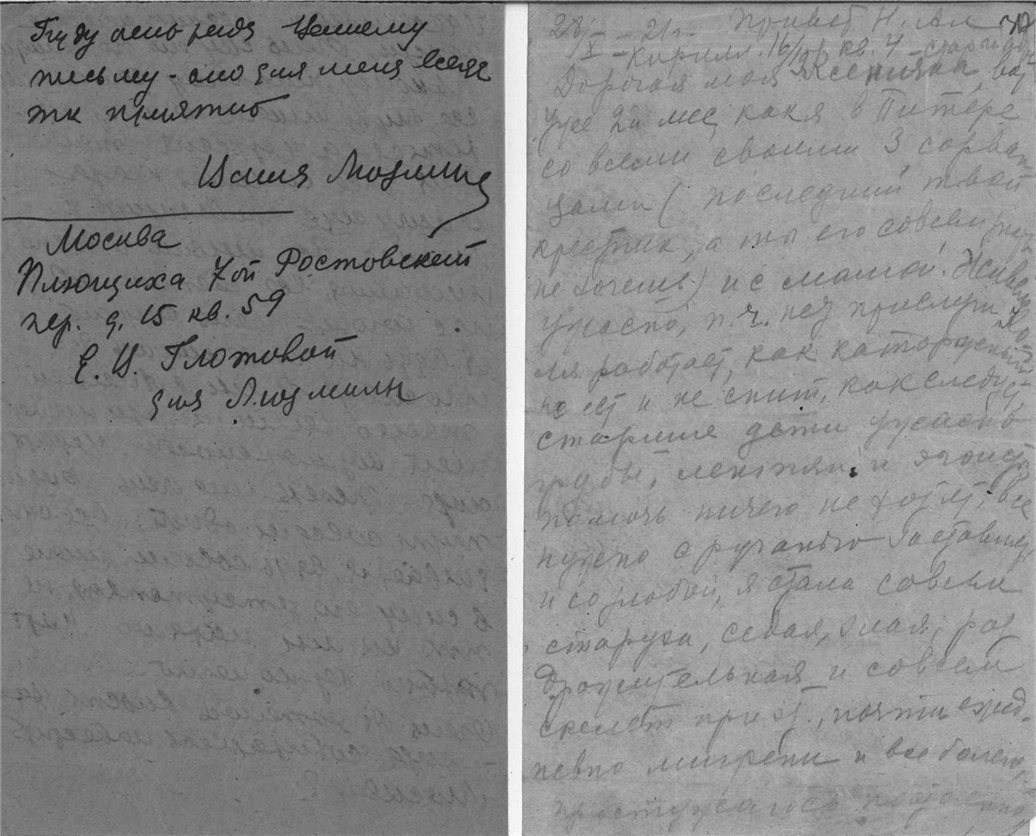 Буду очень рада Вашему
письму - оно для меня всегда
так приятно
Ваша Людмила
Москва
Плющиха 7ой Ростовский
пер. д. 15 кв. 59
Е. И. Глотовой
для Людмилы
28/IX - 21 г. Привет Н. Ал
Кирилл. 16/ кв. 4
Дорогая моя Ксенияка, вот
уже 2й мес, как я в Питере
со всеми своими 3 сорван
цами (последний твой
крестник, а ты его совсем
не хочешь) и с мамой. Живем
ужасно, п. ч. нет прислуги,
работает, как каторжный
не ест и не спит, как следует
старшие дети ужасно
грубы, лентяи и эгоисты
помочь ничего не хотят, все
нужно с руганью заставлять
и со злобой, я стала совсем
старуха, седая, злая, раз
дражительная и совсем
скелет, почти ежед
невно мигрени и все болею,
простужаюсь